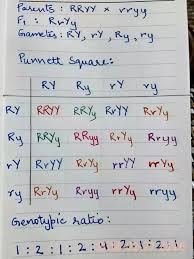 Parents : RRYY × rryy
F₁ : RrYy
Gametes: RY, rY, Ry, ry
Punnett Square:
RY Ry rY ry
RY RRYY RRYy RrYY RrYy
Ry RRYy RRyy RrYy Rryy
rY RrYY RrYy rrYY rrYy
ry RrYy Rryy rrYy rryy
Genotypic ratio:
1:2:1:2:4:2:1:2:1